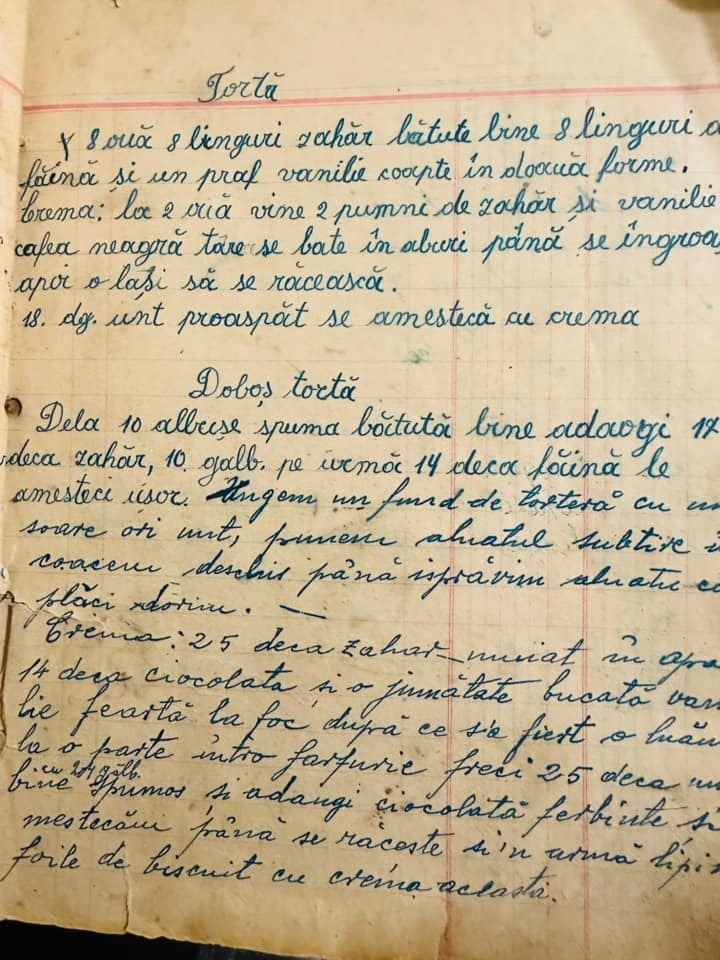 Tortă
8 ouă 8 linguri zahăr bătute bine 8 linguri
făină si un praf vanilie coapte în doauă forme.
Crema: la 2 ouă vine 2 pumni de zahăr și vanilie
cafea neagră tare se bate în aburi până se îngroa
apoi o lași să se răcească.
18. dg. unt proaspăt se amestecă cu crema
Doboș tortă
Dela 10 albușe spuma bătută bine adaogi 14
deca zahăr, 10. galb. pe urmă 14 deca făină le
amesteci ușor. Ungem un fund de torteră cu un
soare ori unt, punem aluatul subtire
coacem deschis până isprăvim aluatu
plăci dorim. —
Crema: 25 deca zahar muiat în apa
14 deca ciocolata și o jumătate bucată van
lie feartă la foc după ce s'a fiert o luăm
la o parte întro farfurie freci 25 deca un
bine cu galb. spumos si adaugi ciocolată ferbinte si
mestecăm până se răcește si'n urmă lipi
foile de biscuit cu crema aceasta.